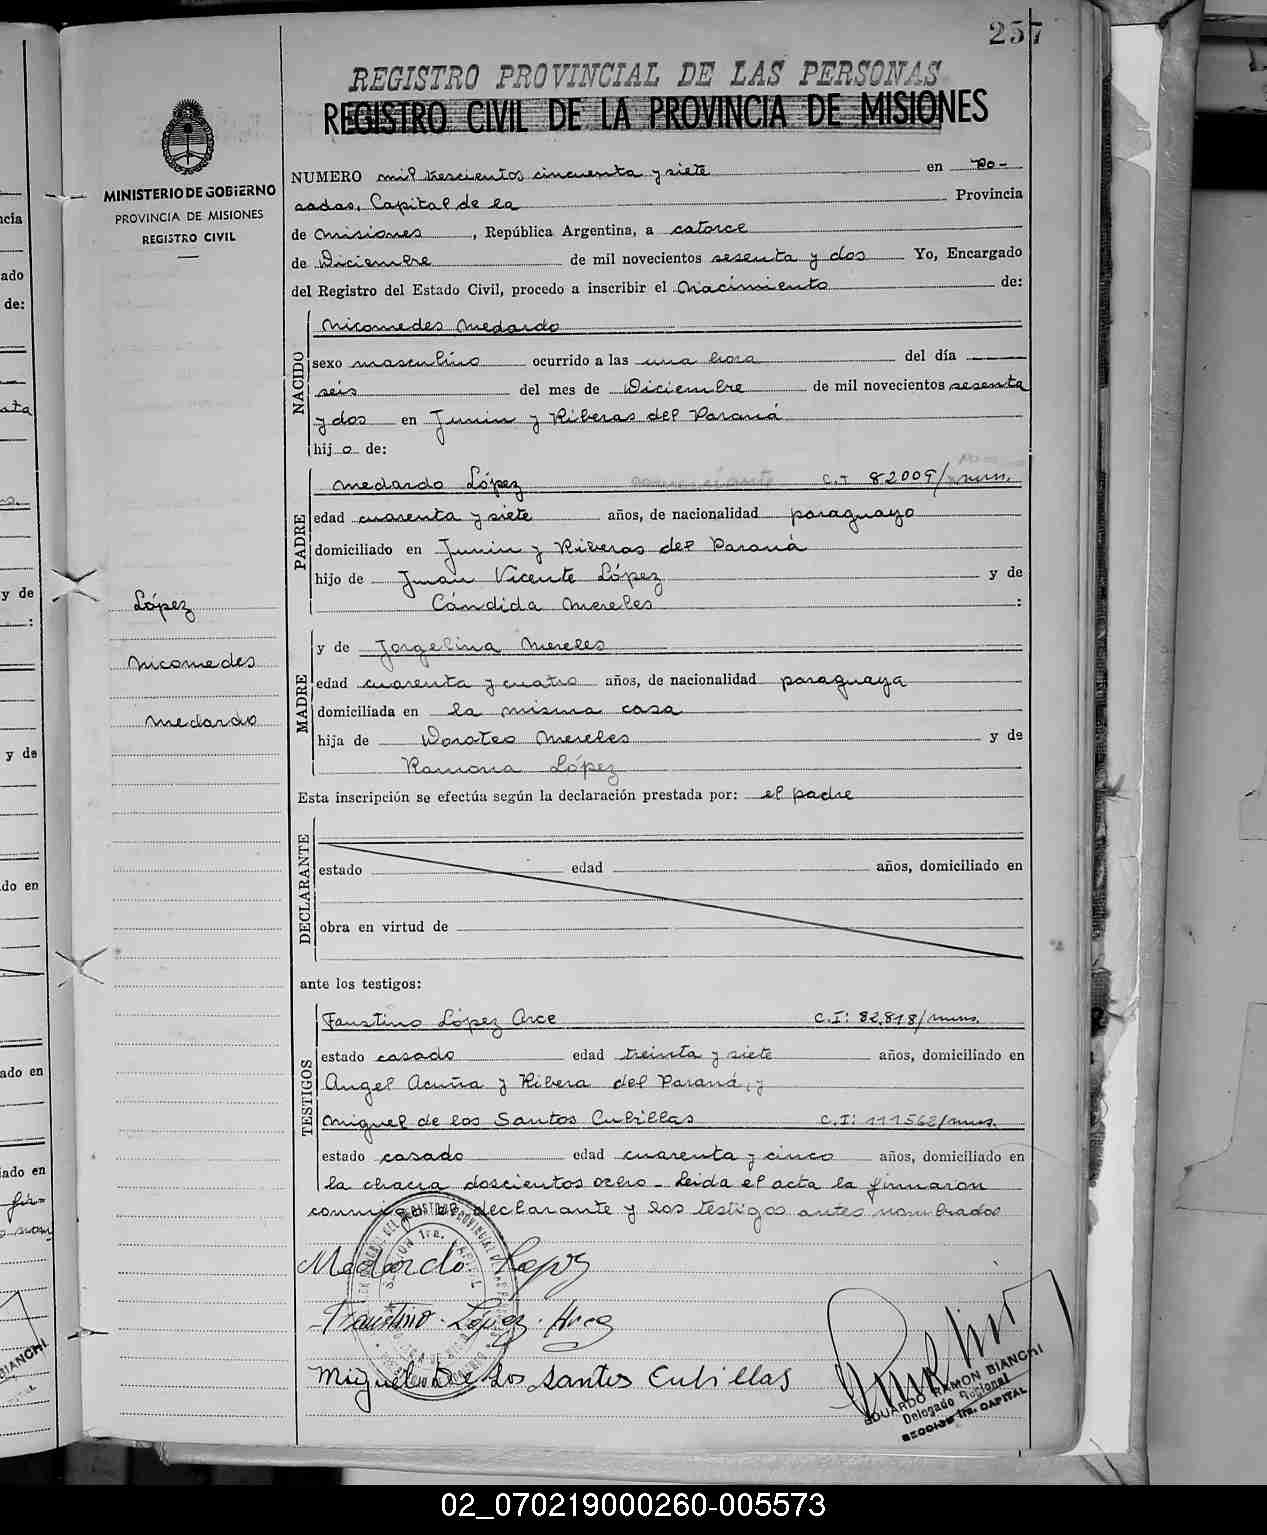 257
REGISTRO PROVINCIAL DE LAS PERSONAS
REGISTRO CIVIL DE LA PROVINCIA DE MISIONES
MINISTERIO DE GOBIERNO
PROVINCIA DE MISIONES
REGISTRO CIVIL
NUMERO mil trescientos cincuenta y siete en Po-
sadas, Capital de la Provincia
de Misiones, República Argentina, a catorce
de Diciembre de mil novecientos sesenta y dos Yo, Encargado
del Registro del Estado Civil, procedo a inscribir el Nacimiento de:
NACIDO
Nicomedes Medardo
sexo masculino ocurrido a las una hora del día
seis del mes de Diciembre de mil novecientos sesenta
y dos en Junin y Riberas del Paraná
hijo de:
PADRE
Medardo López C.I 82009/mnes.
edad cuarenta y siete años, de nacionalidad paraguayo
domiciliado en Junin y Riberas del Paraná
hijo de Juan Vicente López y de
Cándida Mereles :
López
Nicomedes
Medardo
MADRE
y de Jorgelina Mereles
edad cuarenta y cuatro años, de nacionalidad paraguaya
domiciliada en la misma casa
hija de Doroteo Mereles y de
Ramona López
Esta inscripción se efectúa según la declaración prestada por: el padre
DECLARANTE
estado edad años, domiciliado en
obra en virtud de
ante los testigos:
TESTIGOS
Faustino López Arce C.I: 82.818/mnes.
estado casado edad treinta y siete años, domiciliado en
Angel Acuña y Ribera del Paraná, y
Miguel de los Santos Cubillas C.I: 111562/mnes.
estado casado edad cuarenta y cinco años, domiciliado en
la chacra doscientos ocho - Leida el acta la firmaron
conmigo el declarante y los testigos antes nombrados
Medardo Lopez
Faustino López Arce
Miguel De los Santos Cubillas
EDUARDO RAMON BIANCHI
Delegado Regional
SECCION 1ra. CAPITAL
02_070219000260-005573